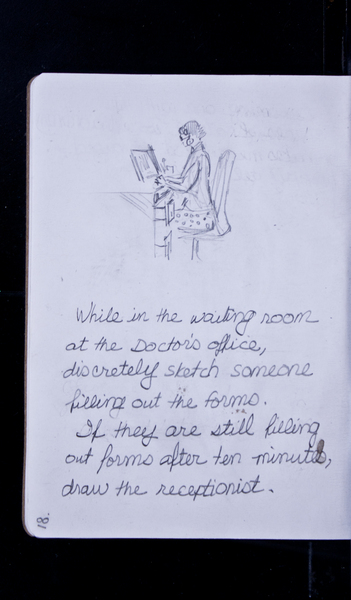 While in the waiting room
at the Doctor's office,
discretely sketch someone
filling out the forms.
If they are still filling
out forms after ten minutes,
draw the receptionist.
18.